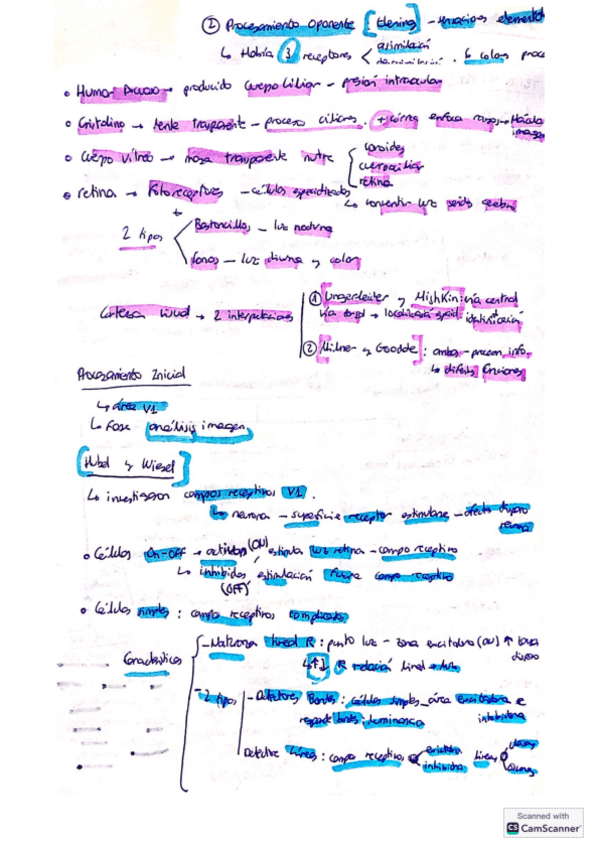 ② Procesamiento oponente [Hering] - sensaciones elemental
↳ Habría 3 receptores < asimilación
desimilación. 6 colores proce
• Humor Acuoso → producido cuerpo ciliar - presión intraocular
• Cristalino → lente transparente - procesos ciliares. enfoca rayos → Hacia
imagen
• Cuerpo Vítreo → masa transparente nutre { coroides
cuerpo ciliar
retina
• retina → Fotoreceptores - células especializadas
↳ convertir luz cerebro
2 tipos < Bastoncillos - luz nocturna
Conos - luz diurna y color
Corteza visual → 2 interpretaciones
① Ungerleiter y Mishkin: vía central
vía dorsal → localización identificación
② [Milner y Goodde]: ambas - procesan info.
↳ difentes funciones
Procesamiento Inicial
↳ área V1
↳ Fase [análisis imagen]
[Hubel y Wiesel]
↳ investigaron campos receptivos V1.
↳ neurona - superficie receptor estimularse - efecto disparo
neurona
• Células On-Off → activas (ON) estimula luz retina - campo receptivo
↳ inhibidas estimulación fuera campo receptivo
(OFF)
• Células simples: campo receptivos complicados
Características
- Naturaleza lineal R: punto luz - zona excitatoria (ON) ↑ tasa
disparo
↳ ↑↓ R relación lineal
- 2 tipos - Detectores Bordes: células simples - área excitadora e
inhibidora
responde bordes: luminancia
Detectores Líneas: campo receptivos excitadora
inhibidora líneas claras
oscuras
Scanned with
CamScanner